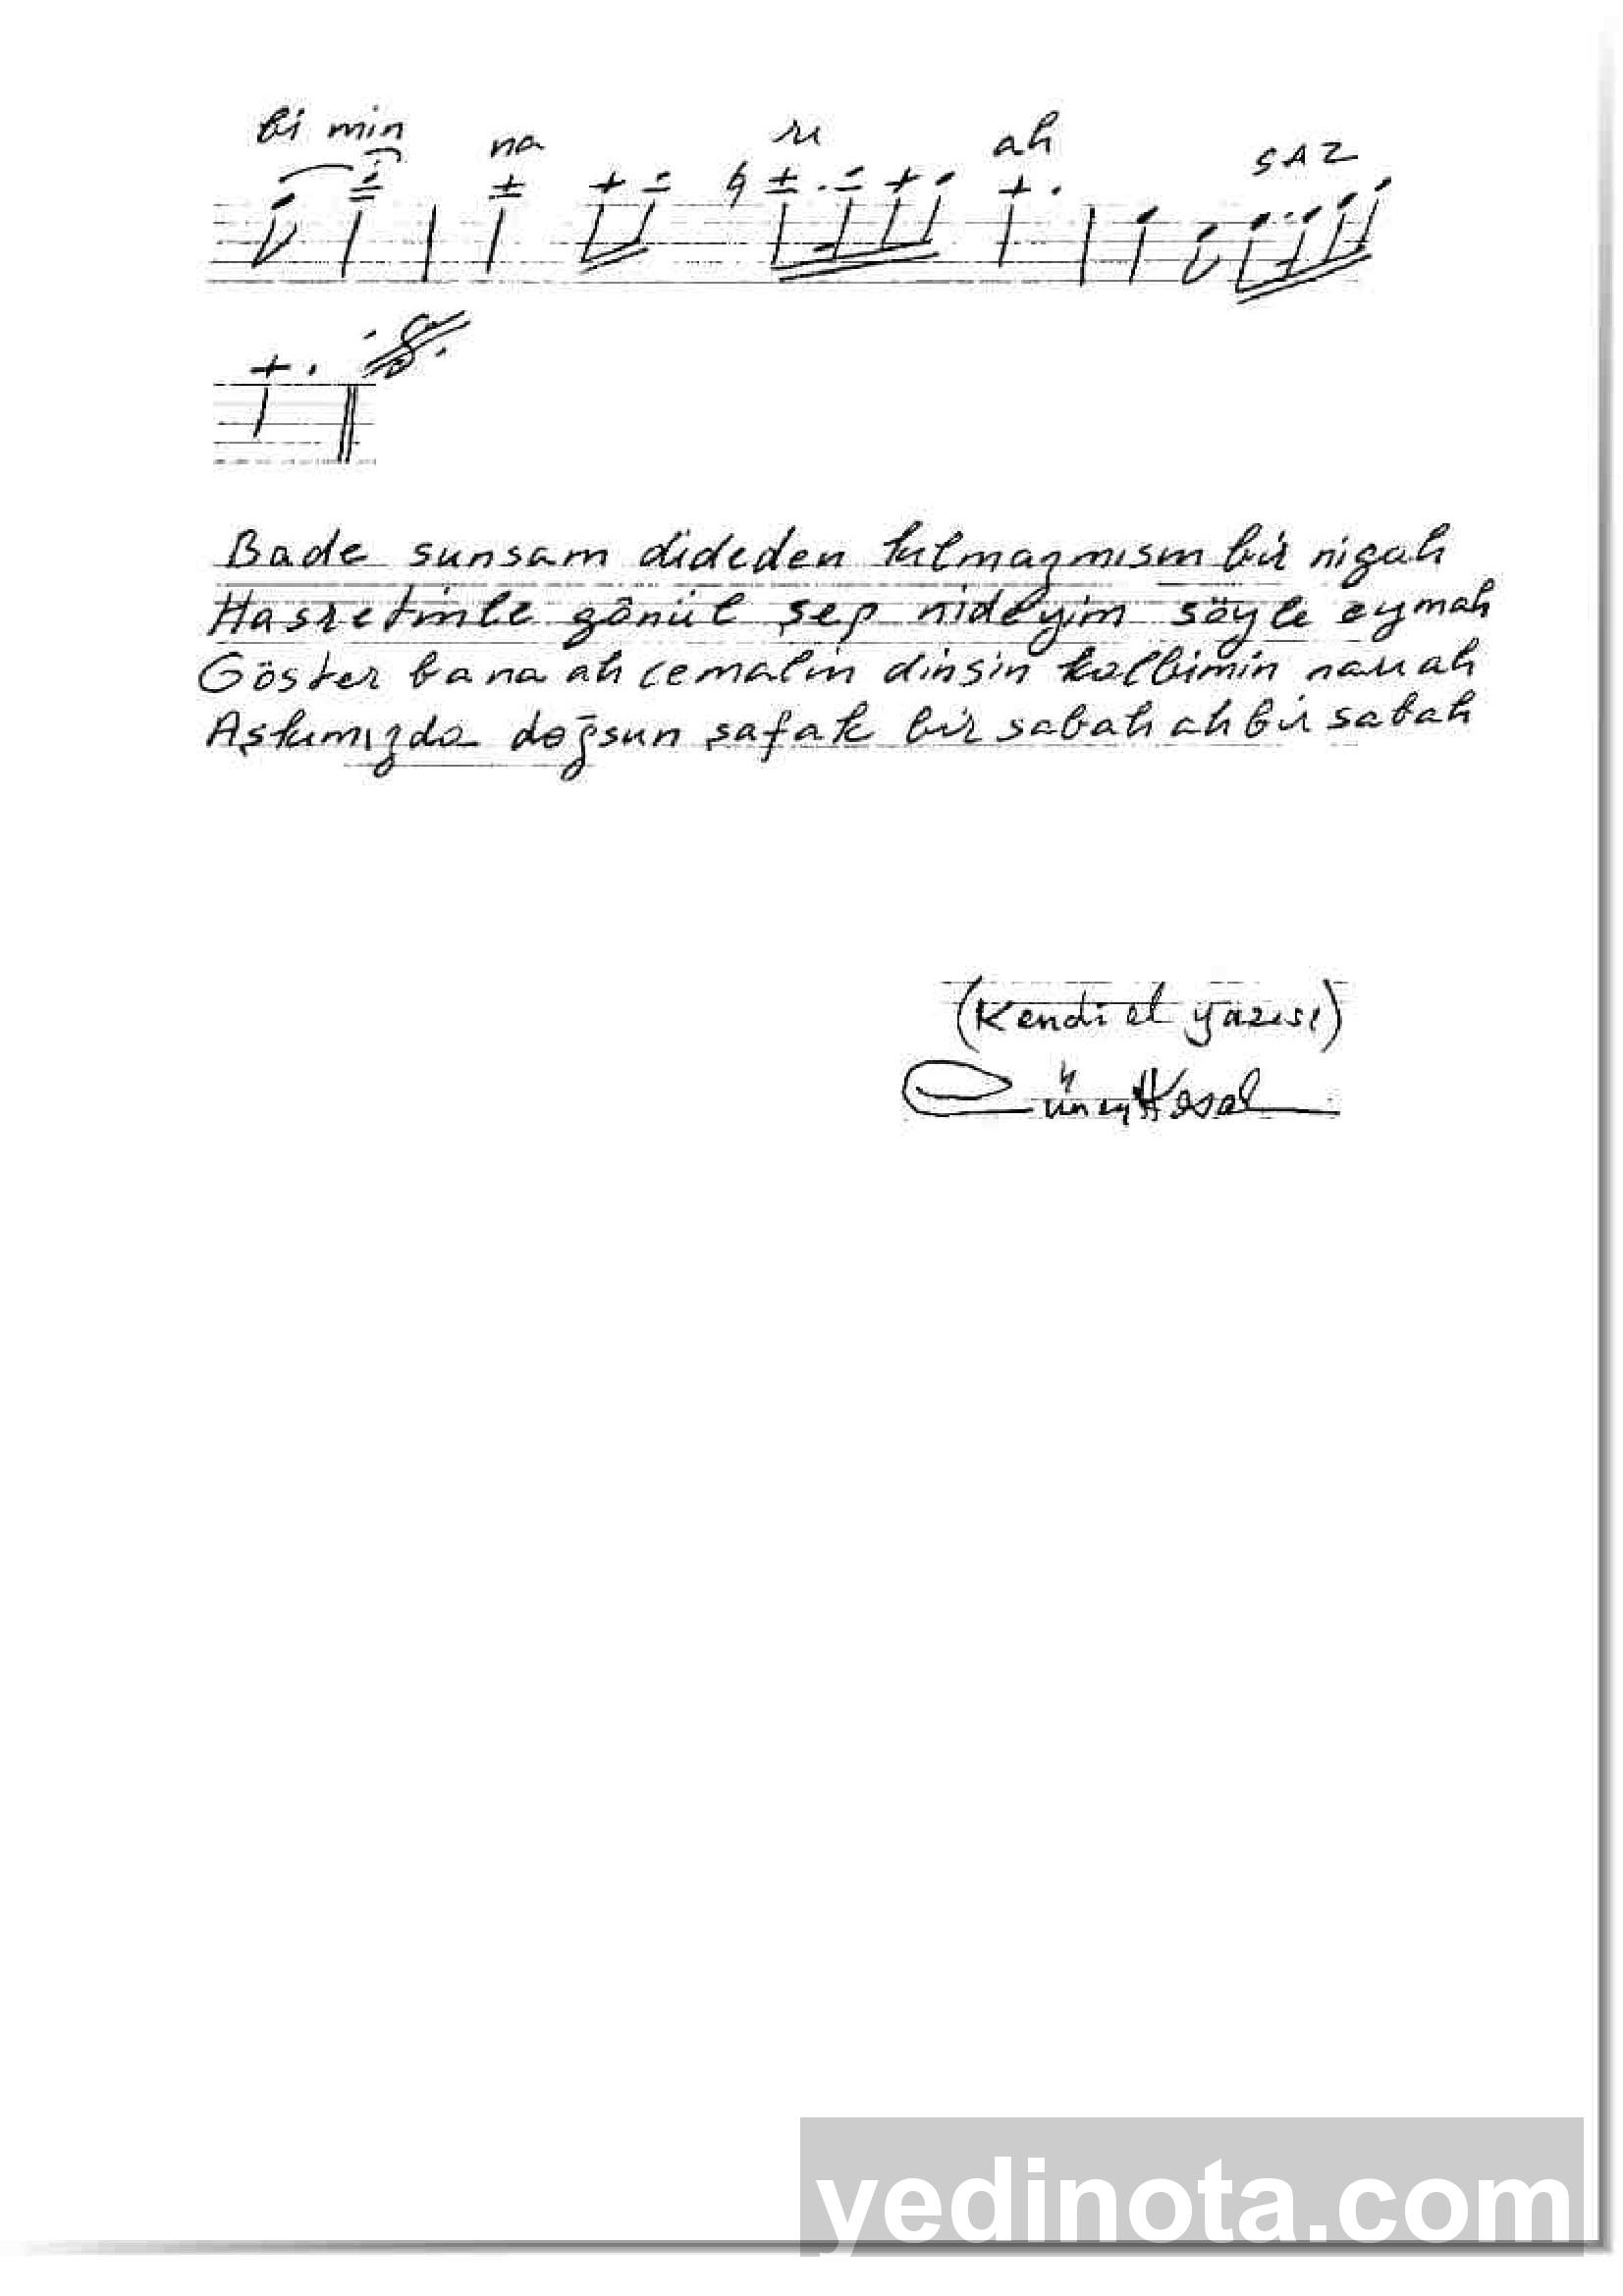 bi min na rı ah SAZ
Bade sunsam dideden kılmazmısın bir nigah
Hasretinle gönül şep nideyim söyle ey mah
Göster bana ah cemalin dinsin kalbimin narı ah
Aşkımızda doğsun şafak bir sabah ah bir sabah
(Kendi el yazısı)
yedinota.com